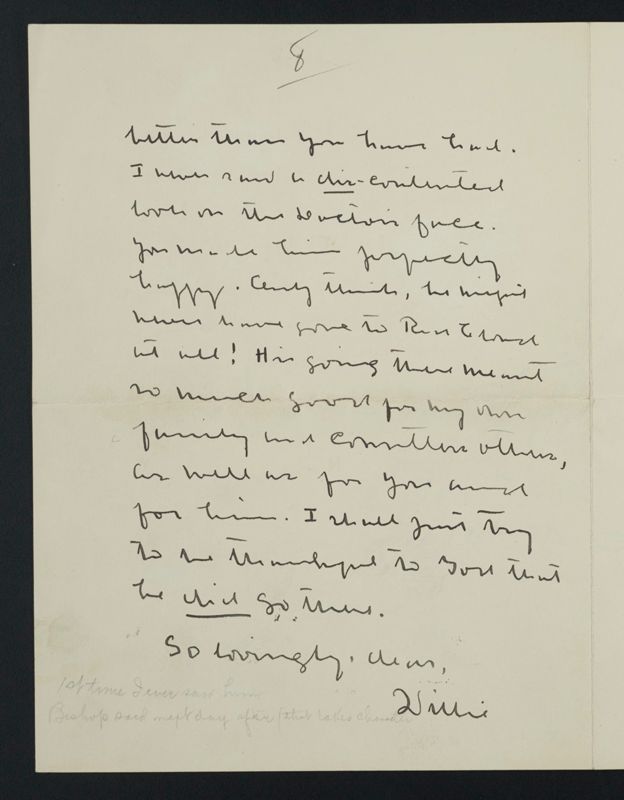 8
better than you have had.
I never saw a dis-contented
look on the Doctor's face.
You made him perfectly
happy. Only think, he might
never have gone to Red Cloud
at all! His going there meant
so much good for my own
family and countless others,
as well as for you and
for him. I shall just try
to be thankful to God that
he did go there.
So lovingly, dear,
Willie
1st time I ever saw him
Bishop said next day after